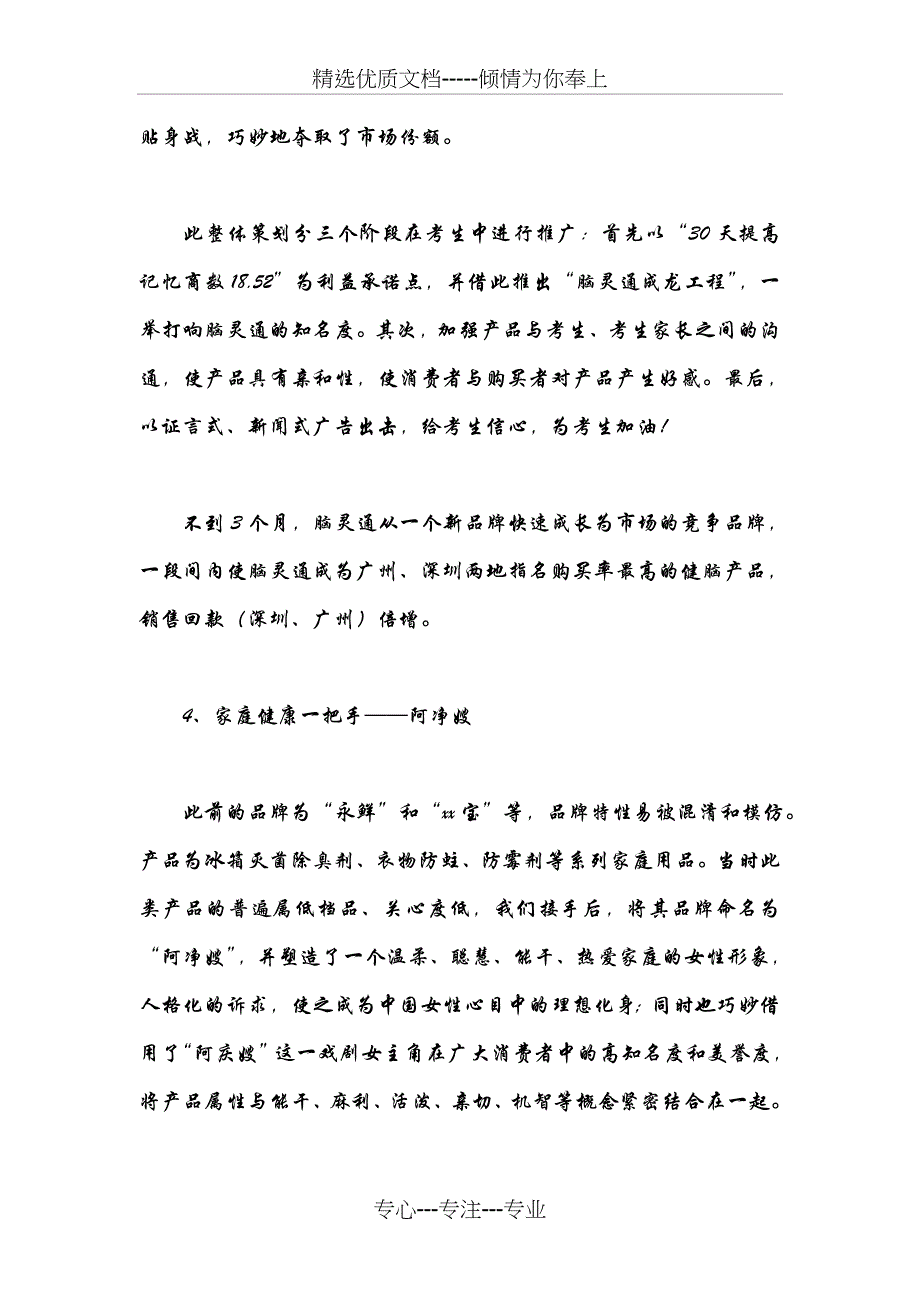 精选优质文档-----倾情为你奉上
贴身战，巧妙地夺取了市场份额。
此整体策划分三个阶段在考生中进行推广：首先以“30天提高
记忆商数18.52”为利益承诺点，并借此推出“脑灵通成龙工程”，一
举打响脑灵通的知名度。其次，加强产品与考生、考生家长之间的沟
通，使产品具有亲和性，使消费者与购买者对产品产生好感。最后，
以证言式、新闻式广告出击，给考生信心，为考生加油！
不到3个月，脑灵通从一个新品牌快速成长为市场的竞争品牌，
一段间内使脑灵通成为广州、深圳两地指名购买率最高的健脑产品，
销售回款（深圳、广州）倍增。
4、家庭健康一把手——阿净嫂
此前的品牌为“永鲜”和“xx宝”等，品牌特性易被混淆和模仿。
产品为冰箱灭菌除臭剂、衣物防蛀、防霉剂等系列家庭用品。当时此
类产品的普遍属低档品、关心度低，我们接手后，将其品牌命名为
“阿净嫂”，并塑造了一个温柔、聪慧、能干、热爱家庭的女性形象，
人格化的诉求，使之成为中国女性心目中的理想化身；同时也巧妙借
用了“阿庆嫂”这一戏剧女主角在广大消费者中的高知名度和美誉度，
将产品属性与能干、麻利、活泼、亲切、机智等概念紧密结合在一起。
专心---专注---专业